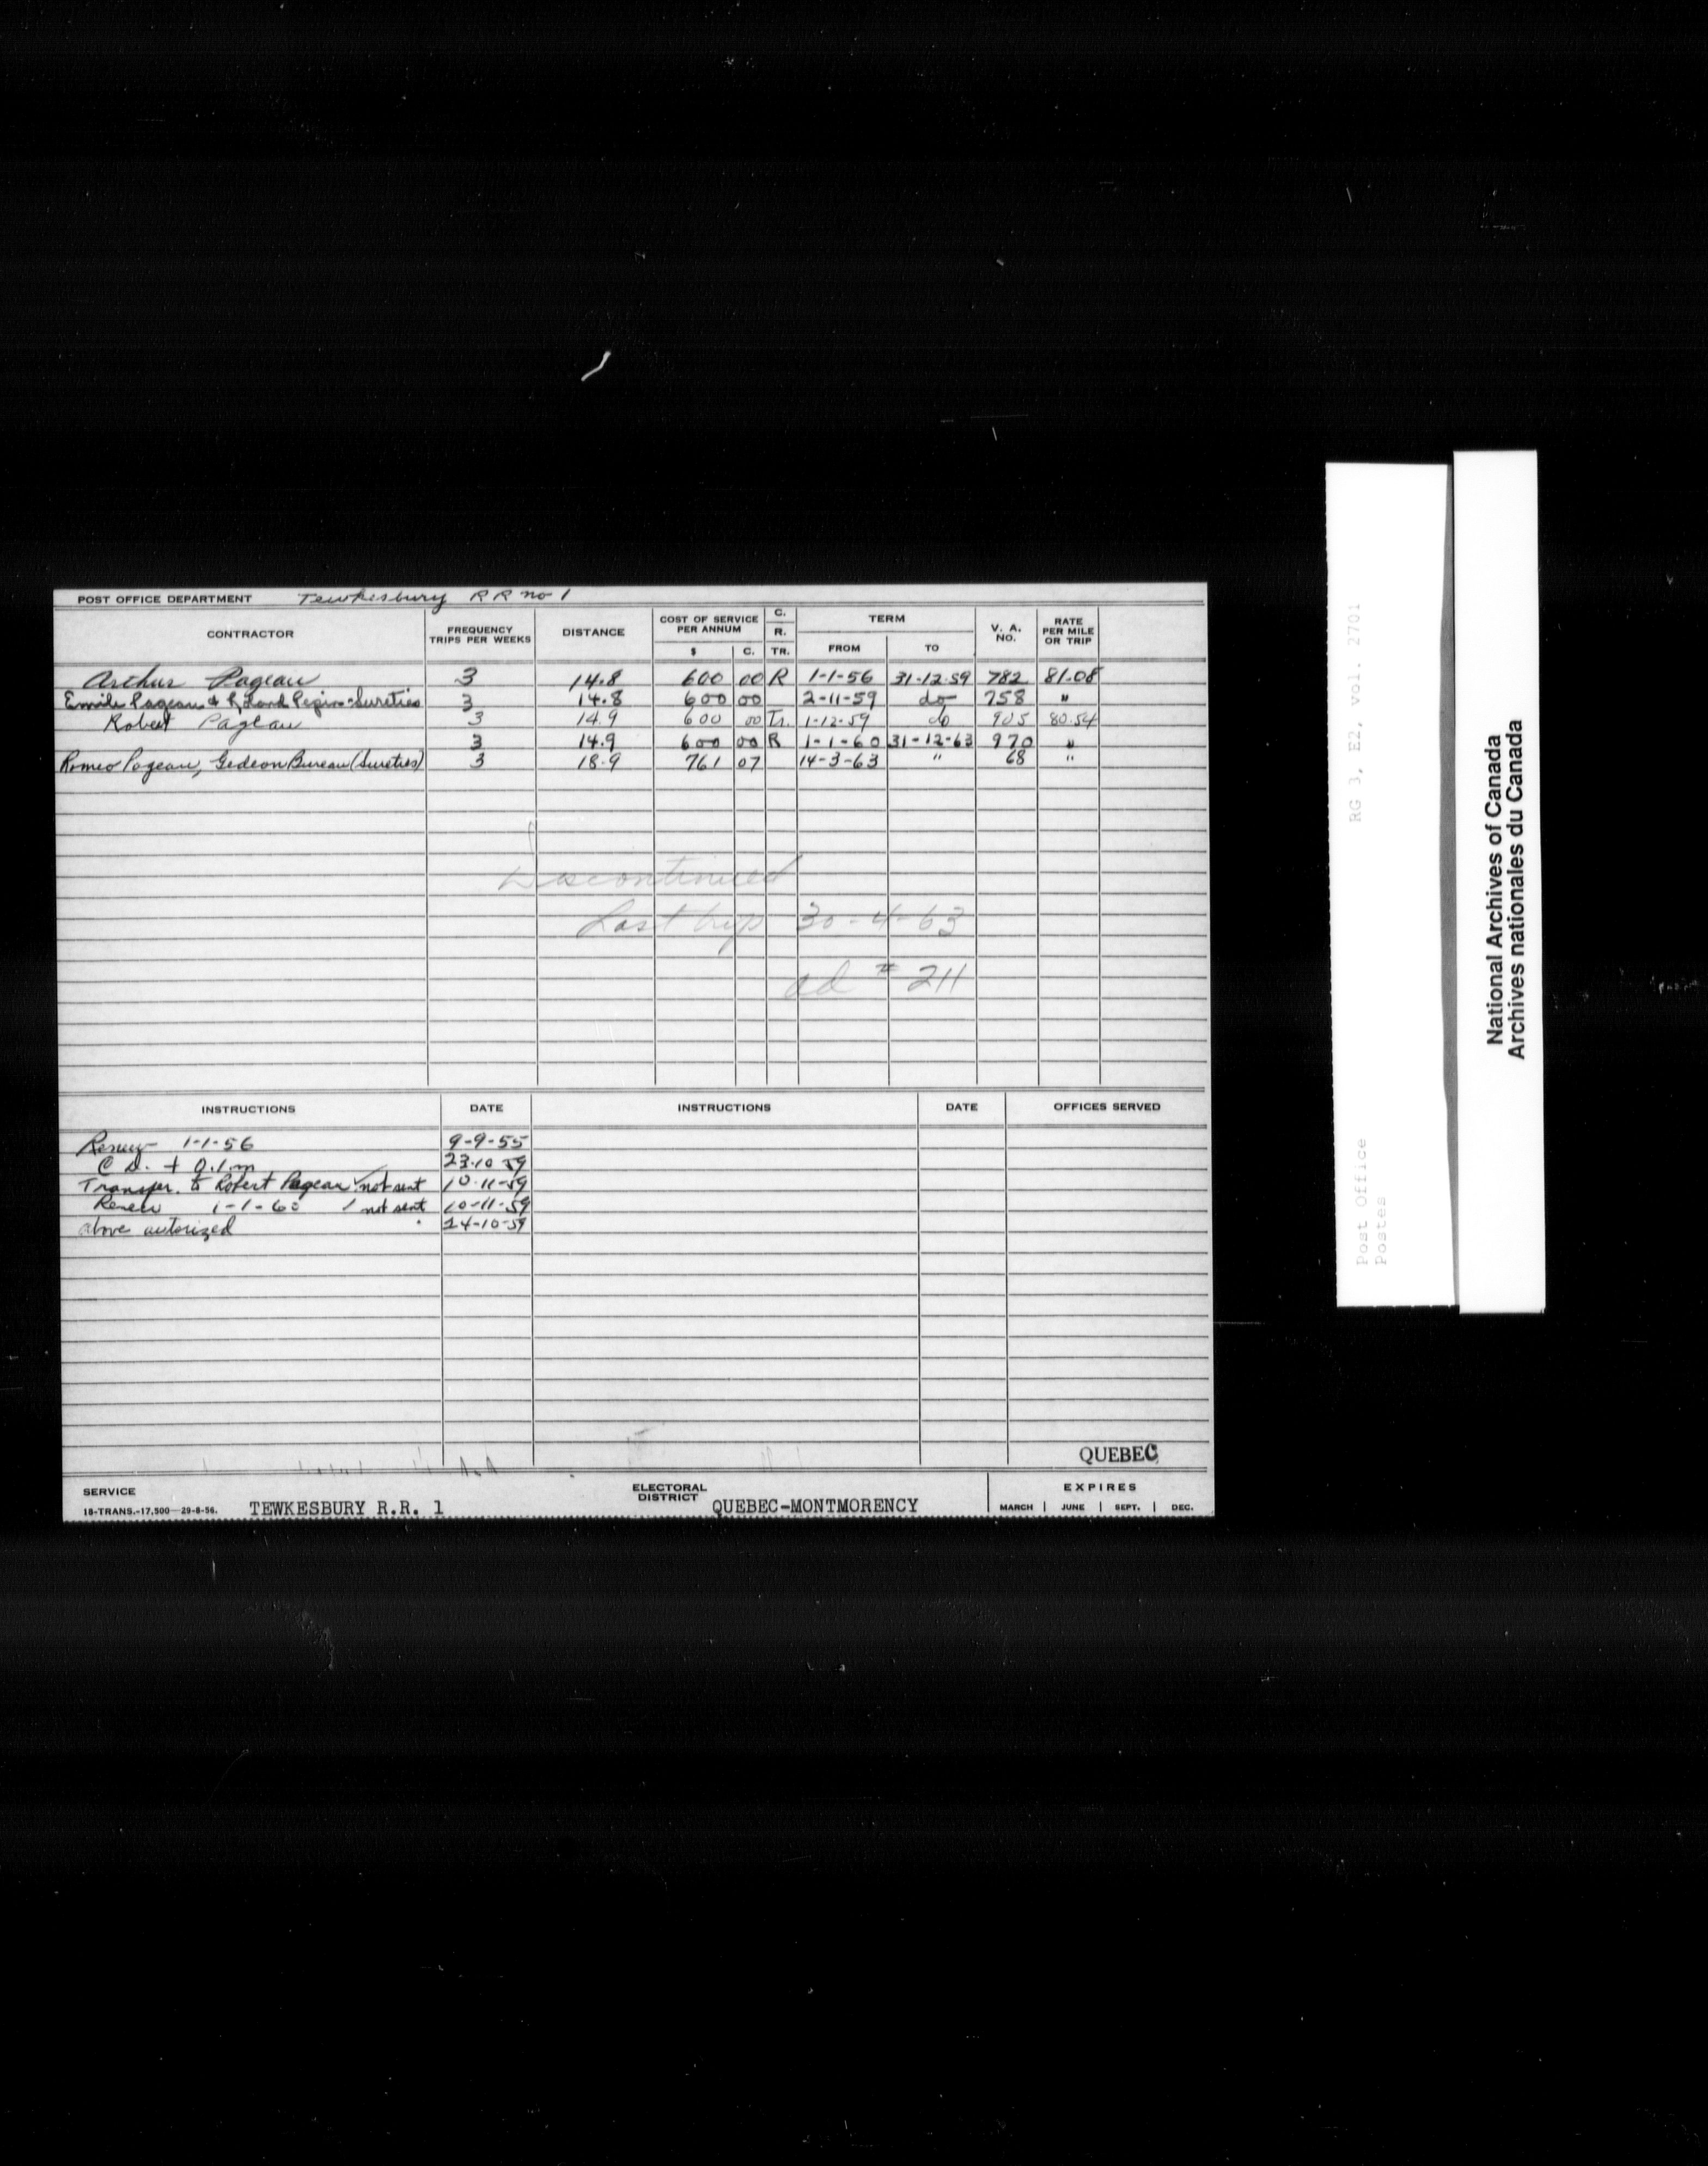 POST OFFICE DEPARTMENT Tewkesbury R R no 1
CONTRACTOR FREQUENCY TRIPS PER WEEKS DISTANCE COST OF SERVICE PER ANNUM $ C. C. R. TR. TERM FROM TO V. A. NO. RATE PER MILE OR TRIP
Arthur Pageau 3 14.8 600 00 R 1-1-56 31-12-59 782 81.08
Emile Pageau & Pepin-Sureties 3 14.8 600 00 2-11-59 do 758 "
Robert Pageau 3 14.9 600 00 Tr. 1-12-59 do 905 80.54
3 14.9 600 00 R 1-1-60 31-12-63 970 "
Romeo Pageau, Gedeon Bureau (Sureties) 3 18.9 761 07 14-3-63 " 68 "
Discontinued
Last trip 30-4-63
ad # 211
INSTRUCTIONS DATE INSTRUCTIONS DATE OFFICES SERVED
Renew 1-1-56 9-9-55
C D. + 0.1 m 23-10-59
Transfer. to Robert Pageau not sent 10-11-59
Renew 1-1-60 / not sent 10-11-59
above autorized 24-10-59
QUEBEC
SERVICE TEWKESBURY R.R. 1 ELECTORAL DISTRICT QUEBEC-MONTMORENCY EXPIRES
18-TRANS.-17,500—29-8-56. MARCH | JUNE | SEPT. | DEC.
RG 3, E2, vol. 2701
Post Office
Postes
National Archives of Canada
Archives nationales du Canada